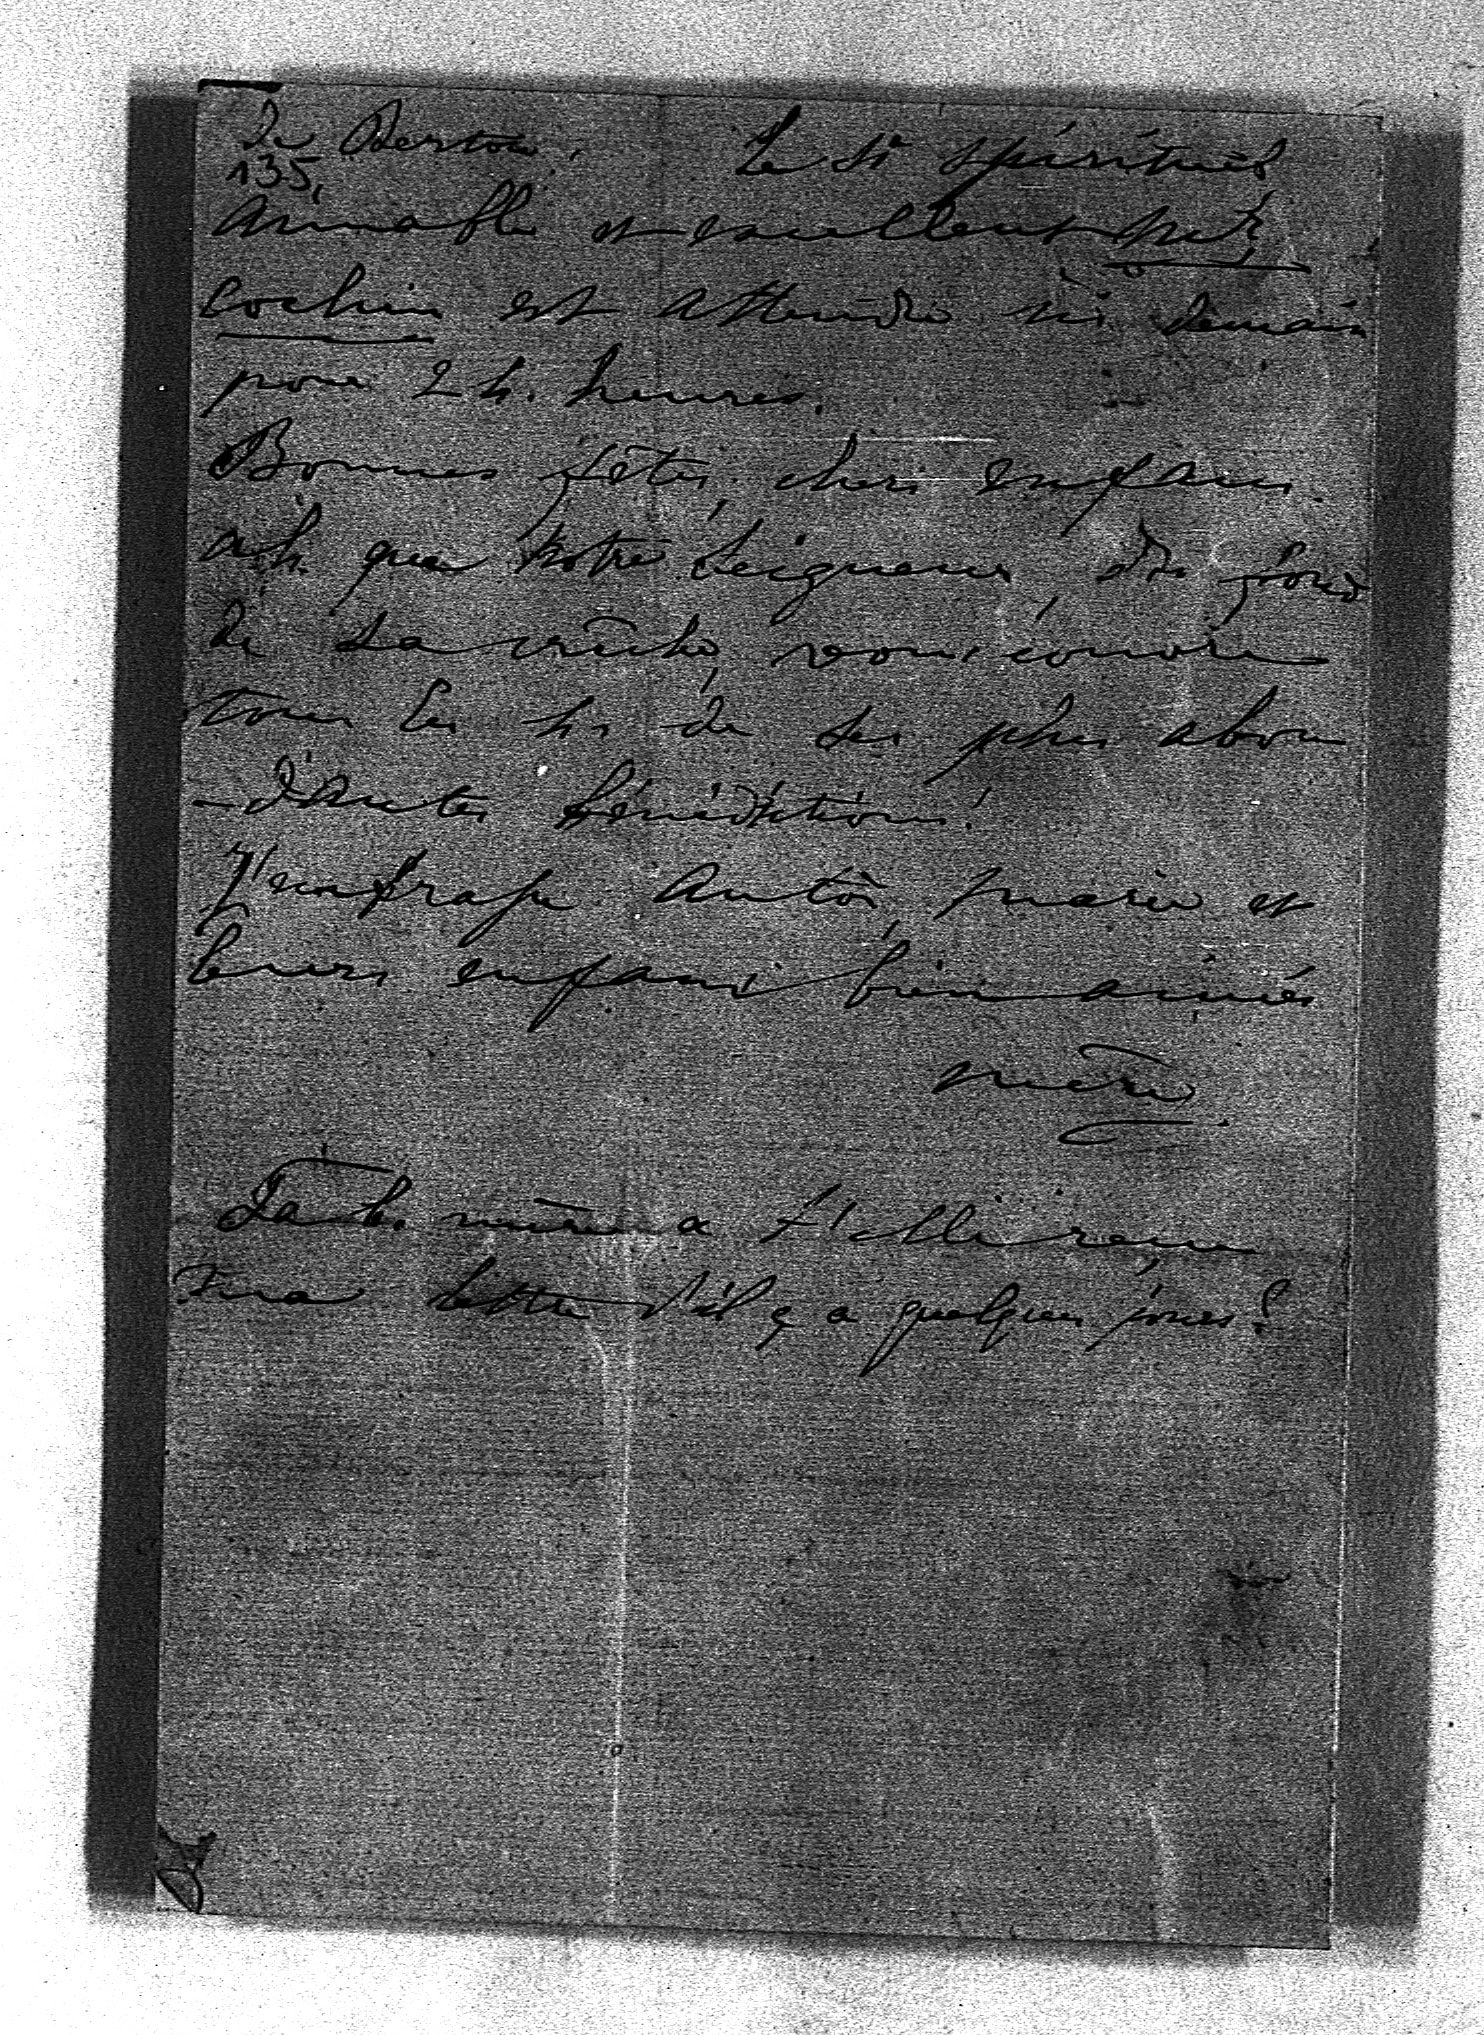 de Bertou. Le si spirituel
135,
aimable et excellent Mr
Cochin est attendu ici demain
pour 24 heures.
Bonnes fêtes, chers enfans.
ah que Notre Seigneur du fond
de sa crèche, vous couvre
tous les de ses plus abon
-dantes bénédictions!
J'embrasse Marie et
leurs enfans bien aimés
mère
mère a t'elle reçu
ma lettre d'il y a quelques jours?